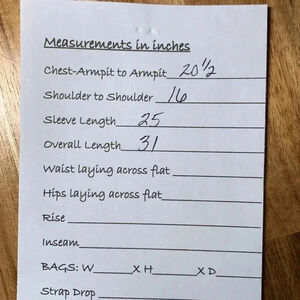 Measurements in inches
Chest-Armpit to Armpit 20 1/2
Shoulder to Shoulder 16
Sleeve Length 25
Overall Length 31
Waist laying across flat
Hips laying across flat
Rise
Inseam
BAGS: W_____X H_____X D_____
Strap Drop